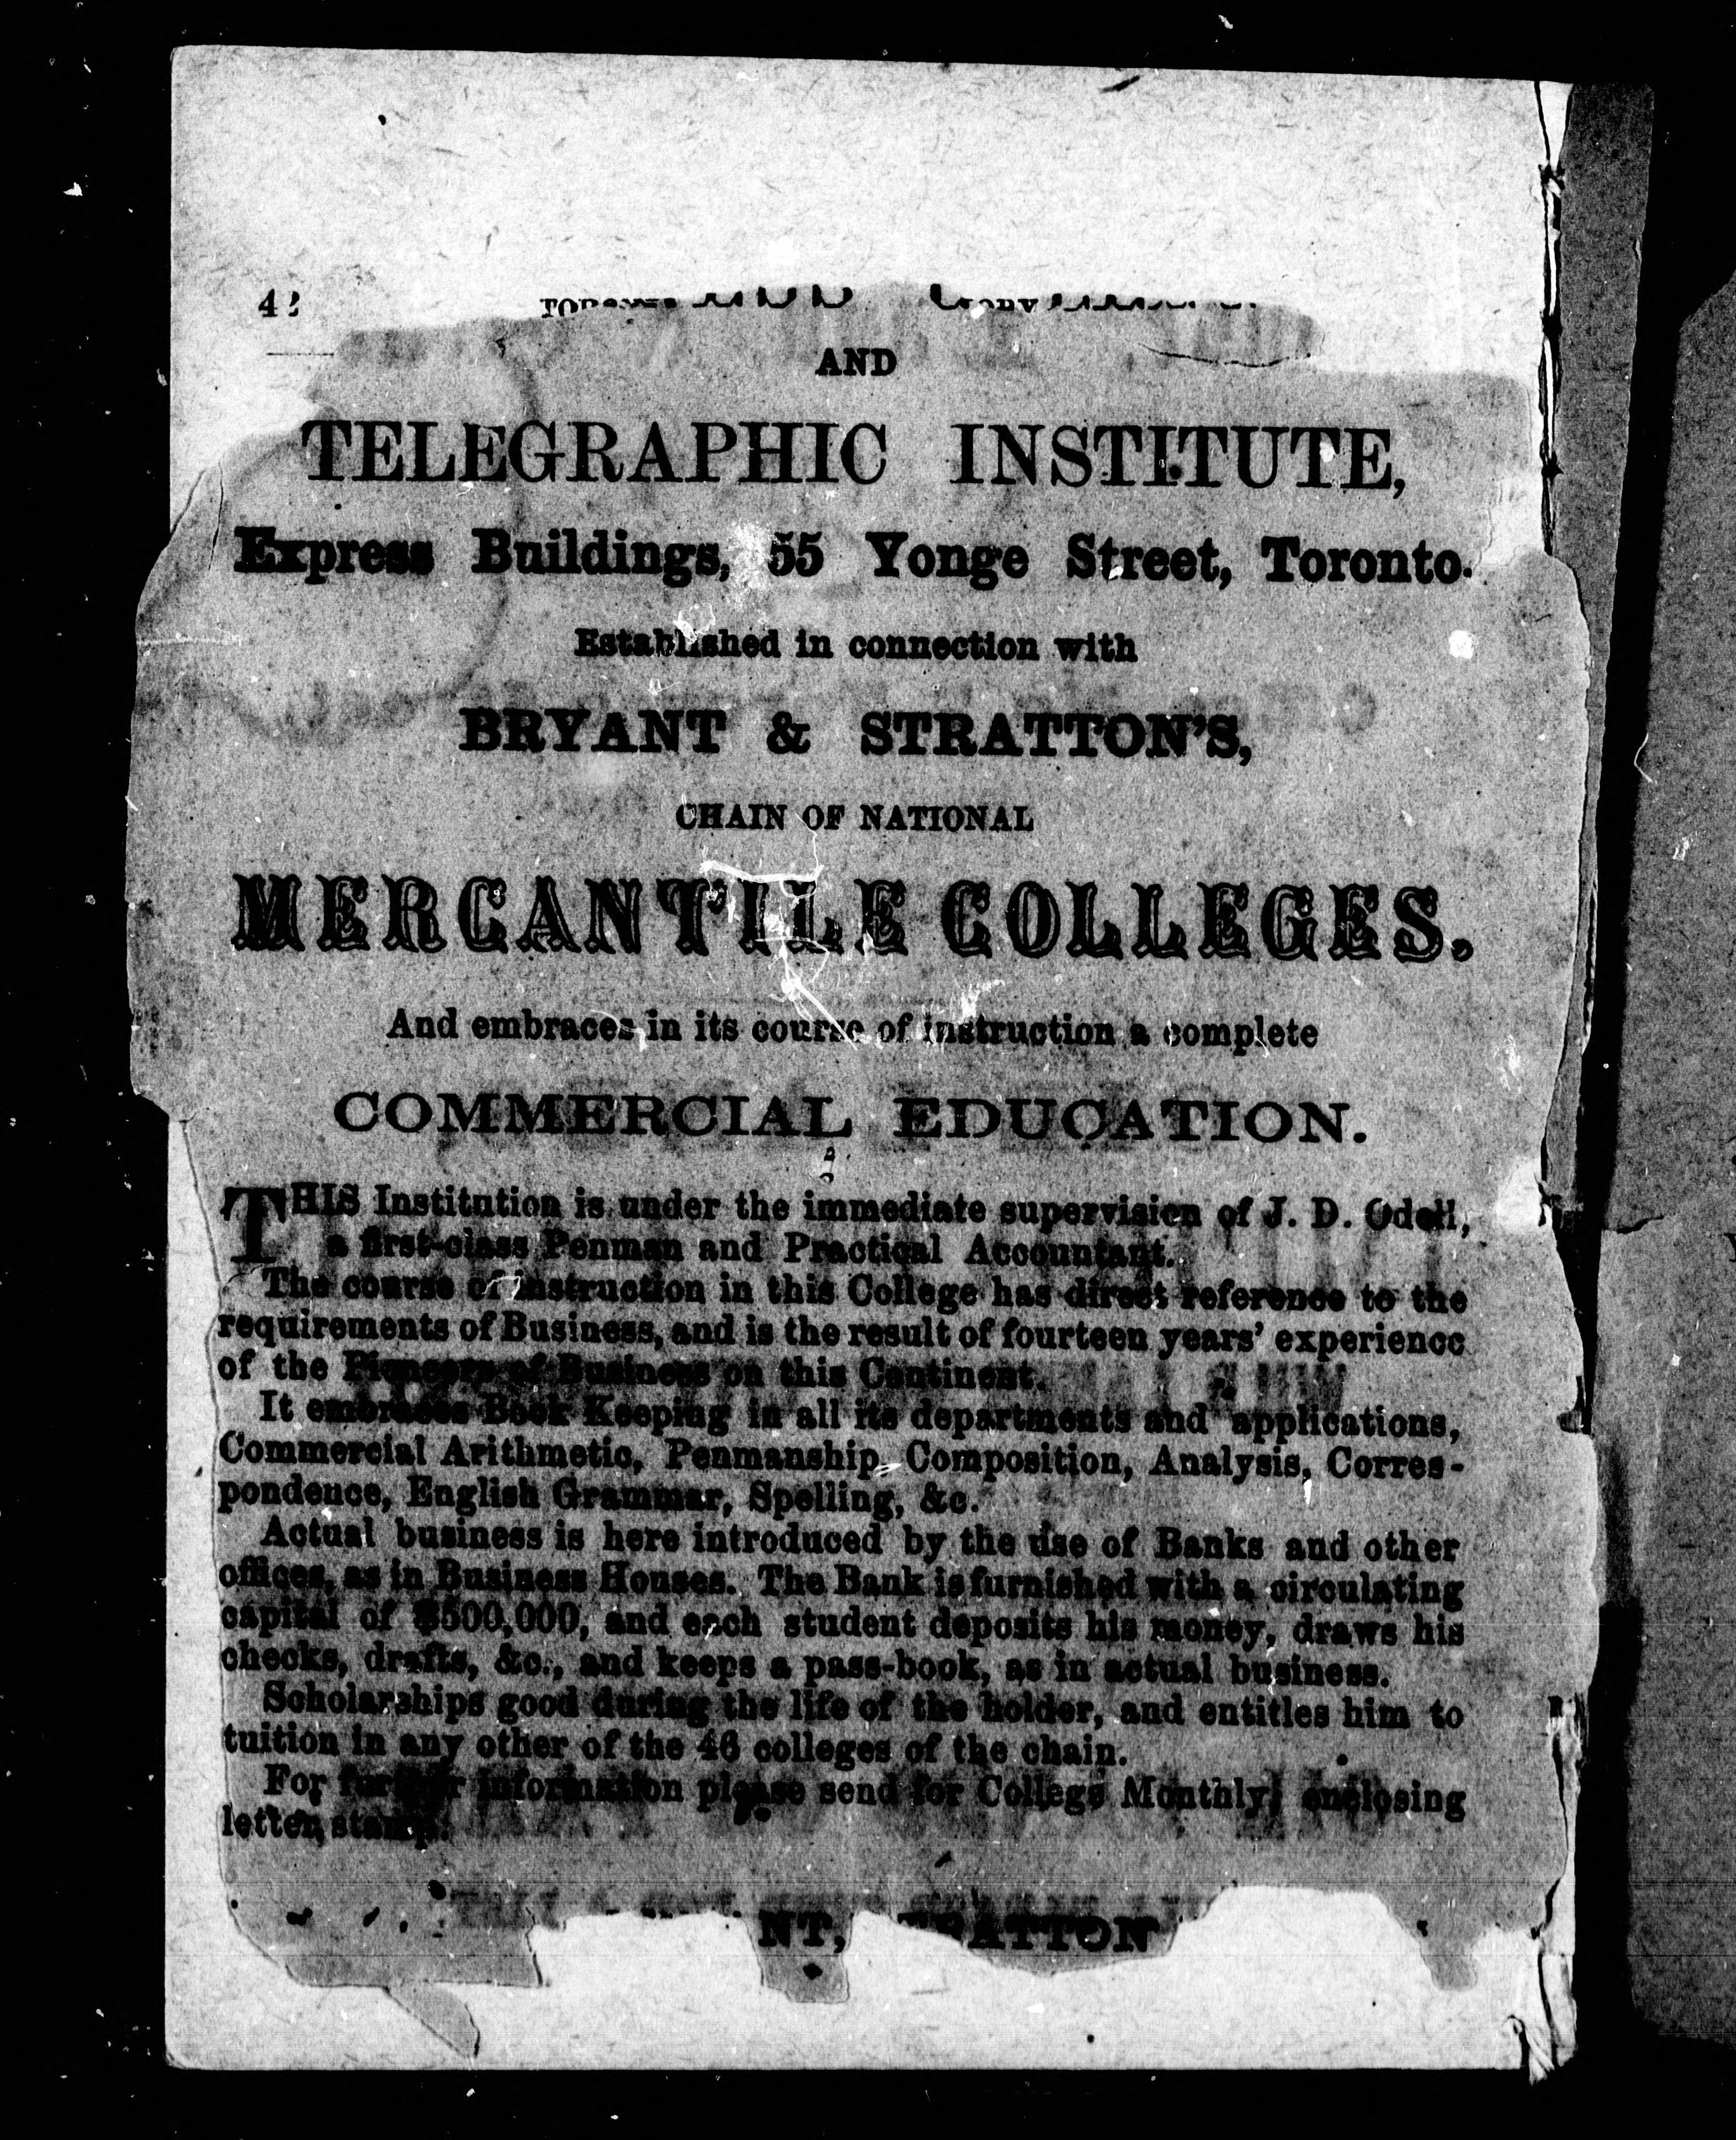 AND
TELEGRAPHIC INSTITUTE,
Express Buildings, 55 Yonge Street, Toronto.
Established in connection with
BRYANT & STRATTON'S,
CHAIN OF NATIONAL
MERCANTILE COLLEGES.
And embraces in its course of instruction a complete
COMMERCIAL EDUCATION.
THIS Institution is under the immediate supervision of J. D. Odell,
a first-class Penman and Practical Accountant.
The course of instruction in this College has direct reference to the
requirements of Business, and is the result of fourteen years' experience
of the Pioneers of Business on this Continent.
It embraces Book Keeping in all its departments and applications,
Commercial Arithmetic, Penmanship, Composition, Analysis, Corres-
pondence, English Grammar, Spelling, &c.
Actual business is here introduced by the use of Banks and other
offices, as in Business Houses. The Bank is furnished with a circulating
capital of $500,000, and each student deposits his money, draws his
checks, drafts, &c., and keeps a pass-book, as in actual business.
Scholarships good during the life of the holder, and entitles him to
tuition in any other of the 46 colleges of the chain.
For further information please send for College Monthly, enclosing
letter stamp.
NT, TRATTON